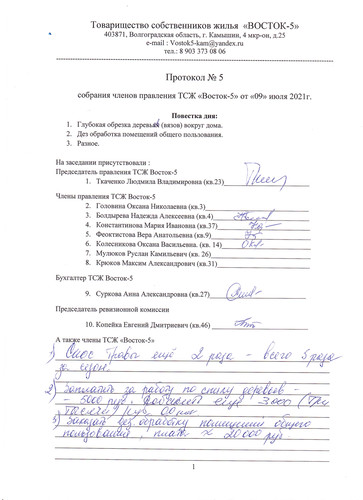 Товарищество собственников жилья «ВОСТОК-5»
403871, Волгоградская область, г. Камышин, 4 мкр-он, д.25
e-mail : Vostok5-kam@yandex.ru
тел.: 8 903 373 08 06
Протокол № 5
собрания членов правления ТСЖ «Восток-5» от «09» июля 2021г.
Повестка дня:
1. Глубокая обрезка деревьев (вязов) вокруг дома.
2. Дез обработка помещений общего пользования.
3. Разное.
На заседании присутствовали :
Председатель правления ТСЖ Восток-5
1. Ткаченко Людмила Владимировна (кв.23)
Члены правления ТСЖ Восток-5
2. Головина Оксана Николаевна (кв.3)
3. Болдырева Надежда Алексеевна (кв.4)
4. Константинова Мария Ивановна (кв.37)
5. Феоктистова Вера Анатольевна (кв.9)
6. Колесникова Оксана Васильевна. (кв. 14)
7. Мулюков Руслан Камильевич (кв. 26)
8. Крюков Максим Александрович (кв.31)
Бухгалтер ТСЖ Восток-5
9. Суркова Анна Александровна (кв.27)
Председатель ревизионной комиссии
10. Копейка Евгений Дмитриевич (кв.46)
А также члены ТСЖ «Восток-5»
1) Скос травы ещё 2 раза - всего 5 раза
за сезон.
2) Заплатить за работу по спилу деревьев -
- 5000 руб. ещё 3000 (Три
тысячи) руб. 00 коп
3) Заказать дез. обработку помещений общего
пользования, ≈ 20000 руб
1